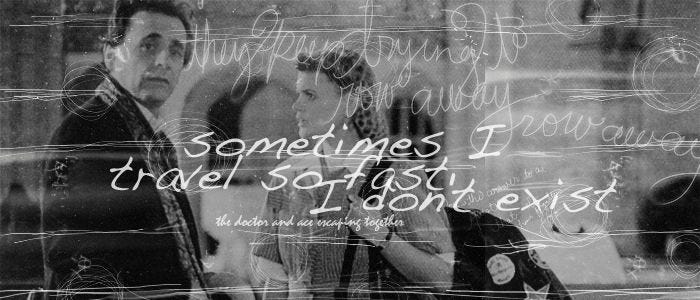 they keep trying to
row away
grow away
sometimes I
travel so fast,
I dont exist
the doctor and ace escaping together